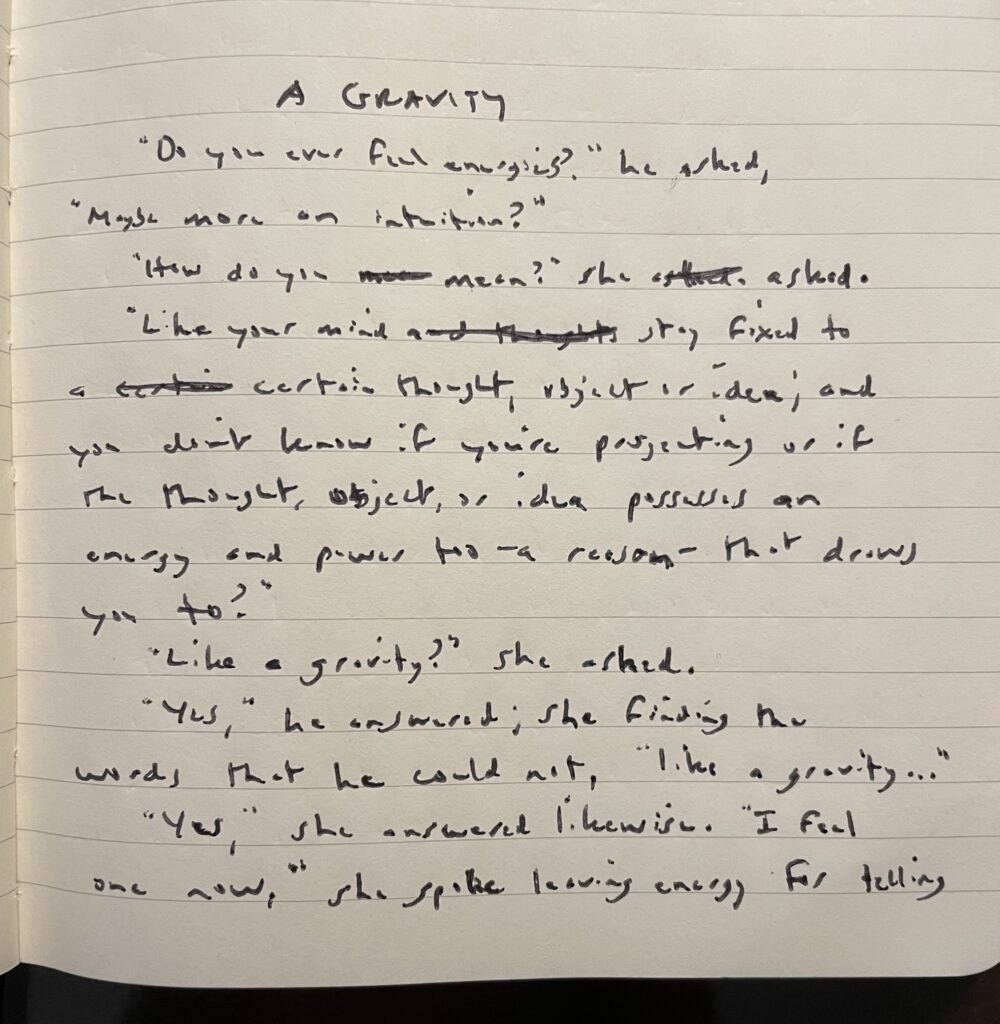 A GRAVITY
"Do you ever feel energies?" he asked,
"Maybe more an intuition?"
"How do you mean?" she asked.
"Like your mind and thoughts stay fixed to
a certain certain thought, object or idea; and
you don't know if you're projecting or if
the thought, object, or idea possesses an
energy and power too -a reason- that draws
you to?"
"Like a gravity?" she asked.
"Yes," he answered; she finding the
words that he could not, "like a gravity..."
"Yes," she answered likewise. "I feel
one now," she spoke leaving energy for telling